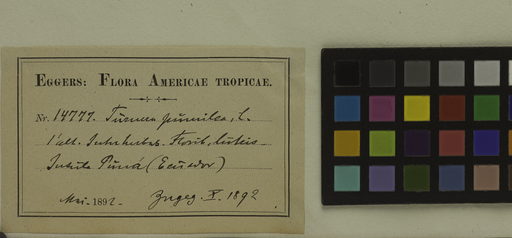 EGGERS: FLORA AMERICAE TROPICAE.
Nr. 14777. Turnera pumilea, L.
1' alt. Suffrutices. Florib. luteis
Insula Puná (Ecuador)
Mai. 1892. Zugeg. X. 1892